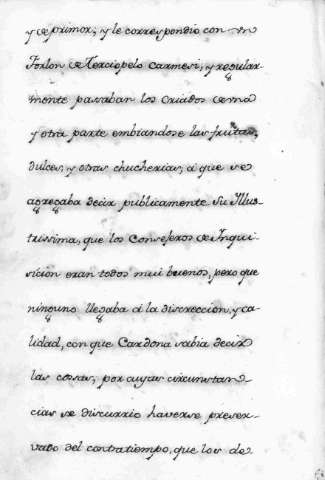 y de primor; y le correspondio con un
Forlon de Terciopelo carmesi, y regular-
mente pasaban los criados de una
y otra parte embiandose las frutas,
dulces, y otras chucherias, á que se
agregaba decir publicamente Su Illus-
trissima, que los Consejeros de Inqui-
sicion eran todos mui buenos, pero que
ninguno llegaba á la discreccion, y ca-
lidad, con que Cardona sabia decir
las cossas; por cuyas circunstan-
cias se discurrio haverse preser-
vado del contratiempo, que los de